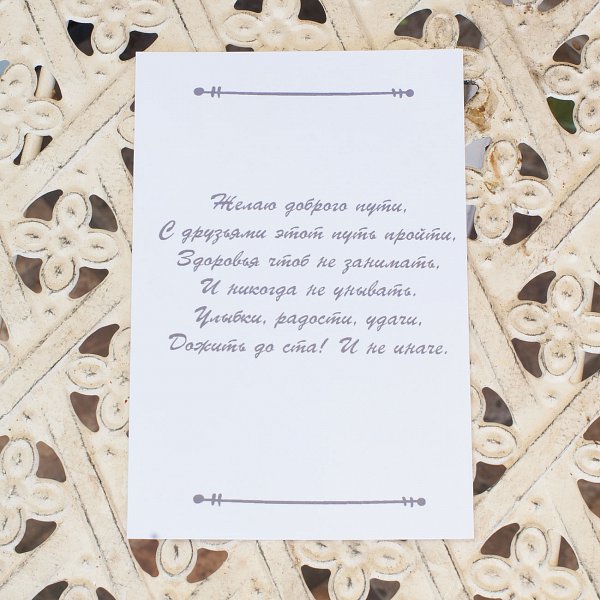 Желаю доброго пути,
С друзьями этот путь пройти,
Здоровья чтоб не занимать,
И никогда не унывать.
Улыбки, радости, удачи,
Дожить до ста! И не иначе.